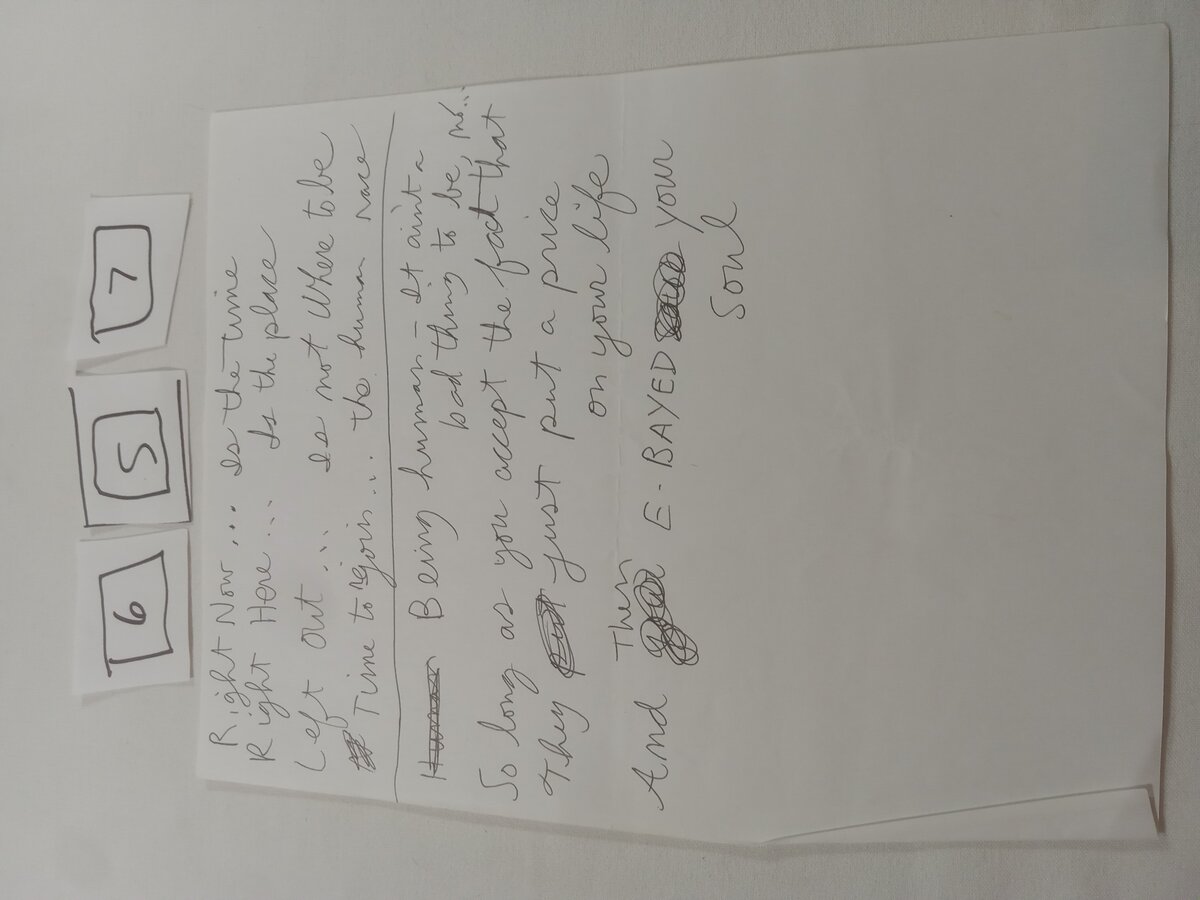 6 5 7
Right Now... Is the time
Right Here... Is the place
Left out... is not Where to be
Time to rejoin... the human race
Being human - It ain't a
bad thing to be, no...
So long as you accept the fact that
They just put a price
on your life
And Then E-BAYED your
Soul